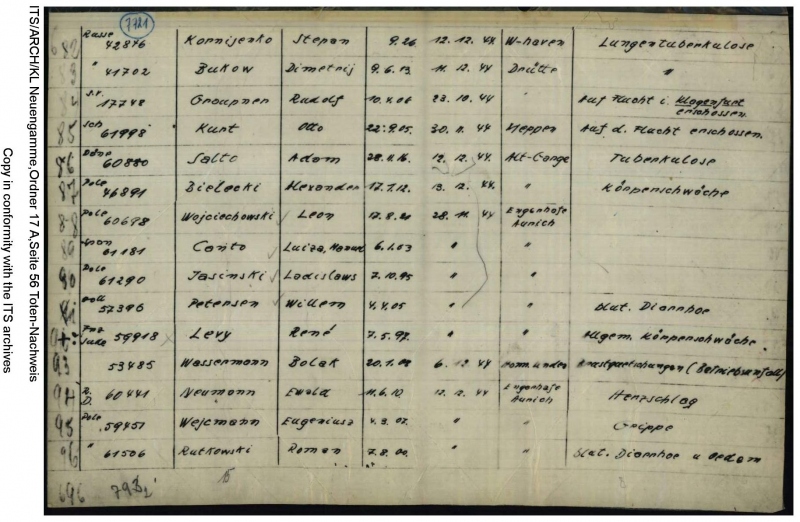 7721
682 Russe 42876 Kornijenko Stepan 9.26. 12.12.44 W-haven Lungentuberkulose
83 " 41702 Bukow Dimetrij 9.6.13. 11.12.44 Drütte "
84 S.V. 17748 Groupner Rudolf 10.4.06 23.10.44 " Auf Flucht i. Klagenfurt erschossen.
85 Sch 61998 Kurt Otto 22.9.05. 30.11.44 Meppen Auf d. Flucht erschossen.
86 Däne 60880 Salto Adam 28.11.16. 12.12.44. Alt-Garge Tuberkulose
87 Pole 46891 Bielecki Alexander 17.7.12. 13.12.44 " Körperschwäche
88 Pole 60698 Wojciechowski Leon 17.8.20 28.11.44 Engerhafe Aurich
89 Span 61181 Canto Luiza, Manuel 6.1.03 " "
90 Pole 61290 Jasinski Ladislaws 7.10.95 " "
91 Holl 57396 Petersen Willem 4.4.05 " " blut. Diarrhoe
92 Frz Jude 59918 Levy René 7.5.97. " " Allgem. Körperschwäche
93 53485 Wassermann Bolak 20.1.08 6.12.44 Kommandos Brustquetschungen (Betriebsunfall)
94 R.D. 60441 Neumann Ewald 11.6.10. 12.12.44 Engerhafe Aurich Herzschlag
95 Pole 59451 Wejcmann Eugeniusz 4.3.07. " " Grippe
96 " 61506 Rutkowski Roman 7.8.00. " " blut. Diarrhoe u Oedem
696 15
ITS/ARCH/KL Neuengamme,Ordner 17 A,Seite 56 Toten-Nachweis
Copy in conformity with the ITS archives